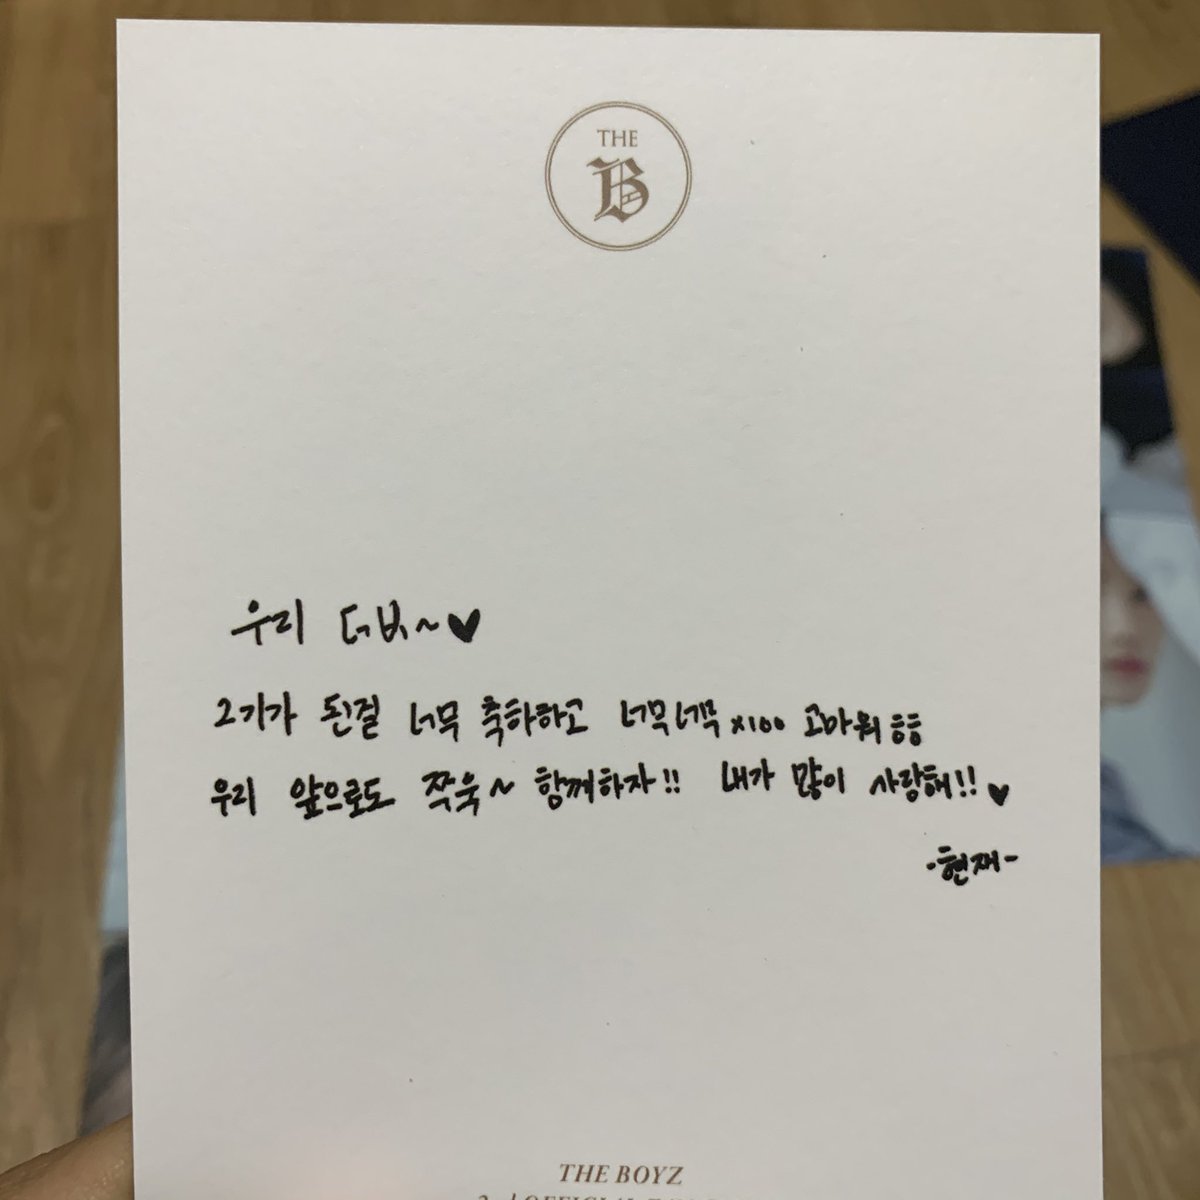 THE
B
우리 더비~♥
2기가 된걸 너무 축하하고 너무너무 x100 고마워 흥흥
우리 앞으로도 쭈욱~ 함께하자!! 내가 많이 사랑해!! ♥
-현재-
THE BOYZ